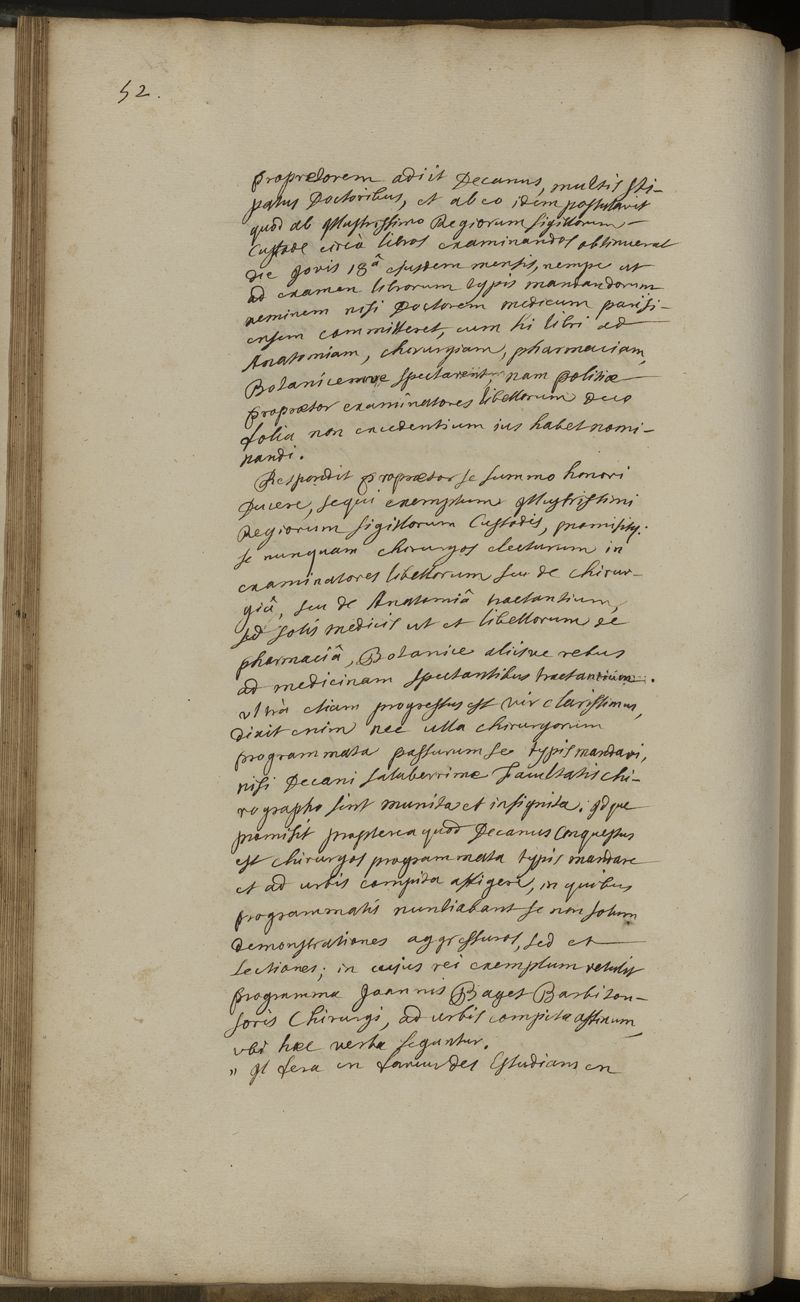 52.
proprætorem adiit Decanus, multis sti-
patus Doctoribus, et ab eo idem postulavit
quod ab Illustrissimo Regiorum sigillorum
Custode circà libros examinandos obtinuerat
die Jovis 18â ejusdem mensis, nempe ut
ad examen librorum typis mandandorum
neminem nisi Doctorem medicum parisi-
ensem committeret, cum hi libri ad
Anatomiam, chirurgiam, pharmaciam,
Botanicemve spectarent, nam politiæ
proprætor examinatores libellorum duo
folia non excedentium ius habet nomi-
nandi.
Respondit proprætor se summo honori
Ducere, sequi exemplum Illustrissimi
Regiorum sigillorum Custodis, promisitq.
se nunquam chirurgos electurum in
examinatores libellorum seu de chirur-
giâ, seu de Anatomiâ tractantium,
sed solis medicis ut et libellorum de
pharmaciâ, Botanice aliisve rebus
ad medicinam spectantibus tractantium.
ultrà etiam progressus est vir clarissimus,
dixit enim nec ulla chirurgorum
programmata passurum se typis mandari,
nisi Decani saluberrimæ Facultatis chi-
rographo sint munita et insignita. idque
promisit propterea quod Decanus conquestus
est chirurgos programmata typis mandare
et ad urbis compita affigere, in quibus
programmatis nuntiabant se non solum
demonstrationes aggressuros, sed et
Lectiones; in cujus rei exemplum retulit
programma Joannis Baget Barbiton-
soris Chirurgi, ad urbis compita affixum,
ubi hæc verba seguntur.
" Il fera en faveur des Estudians en